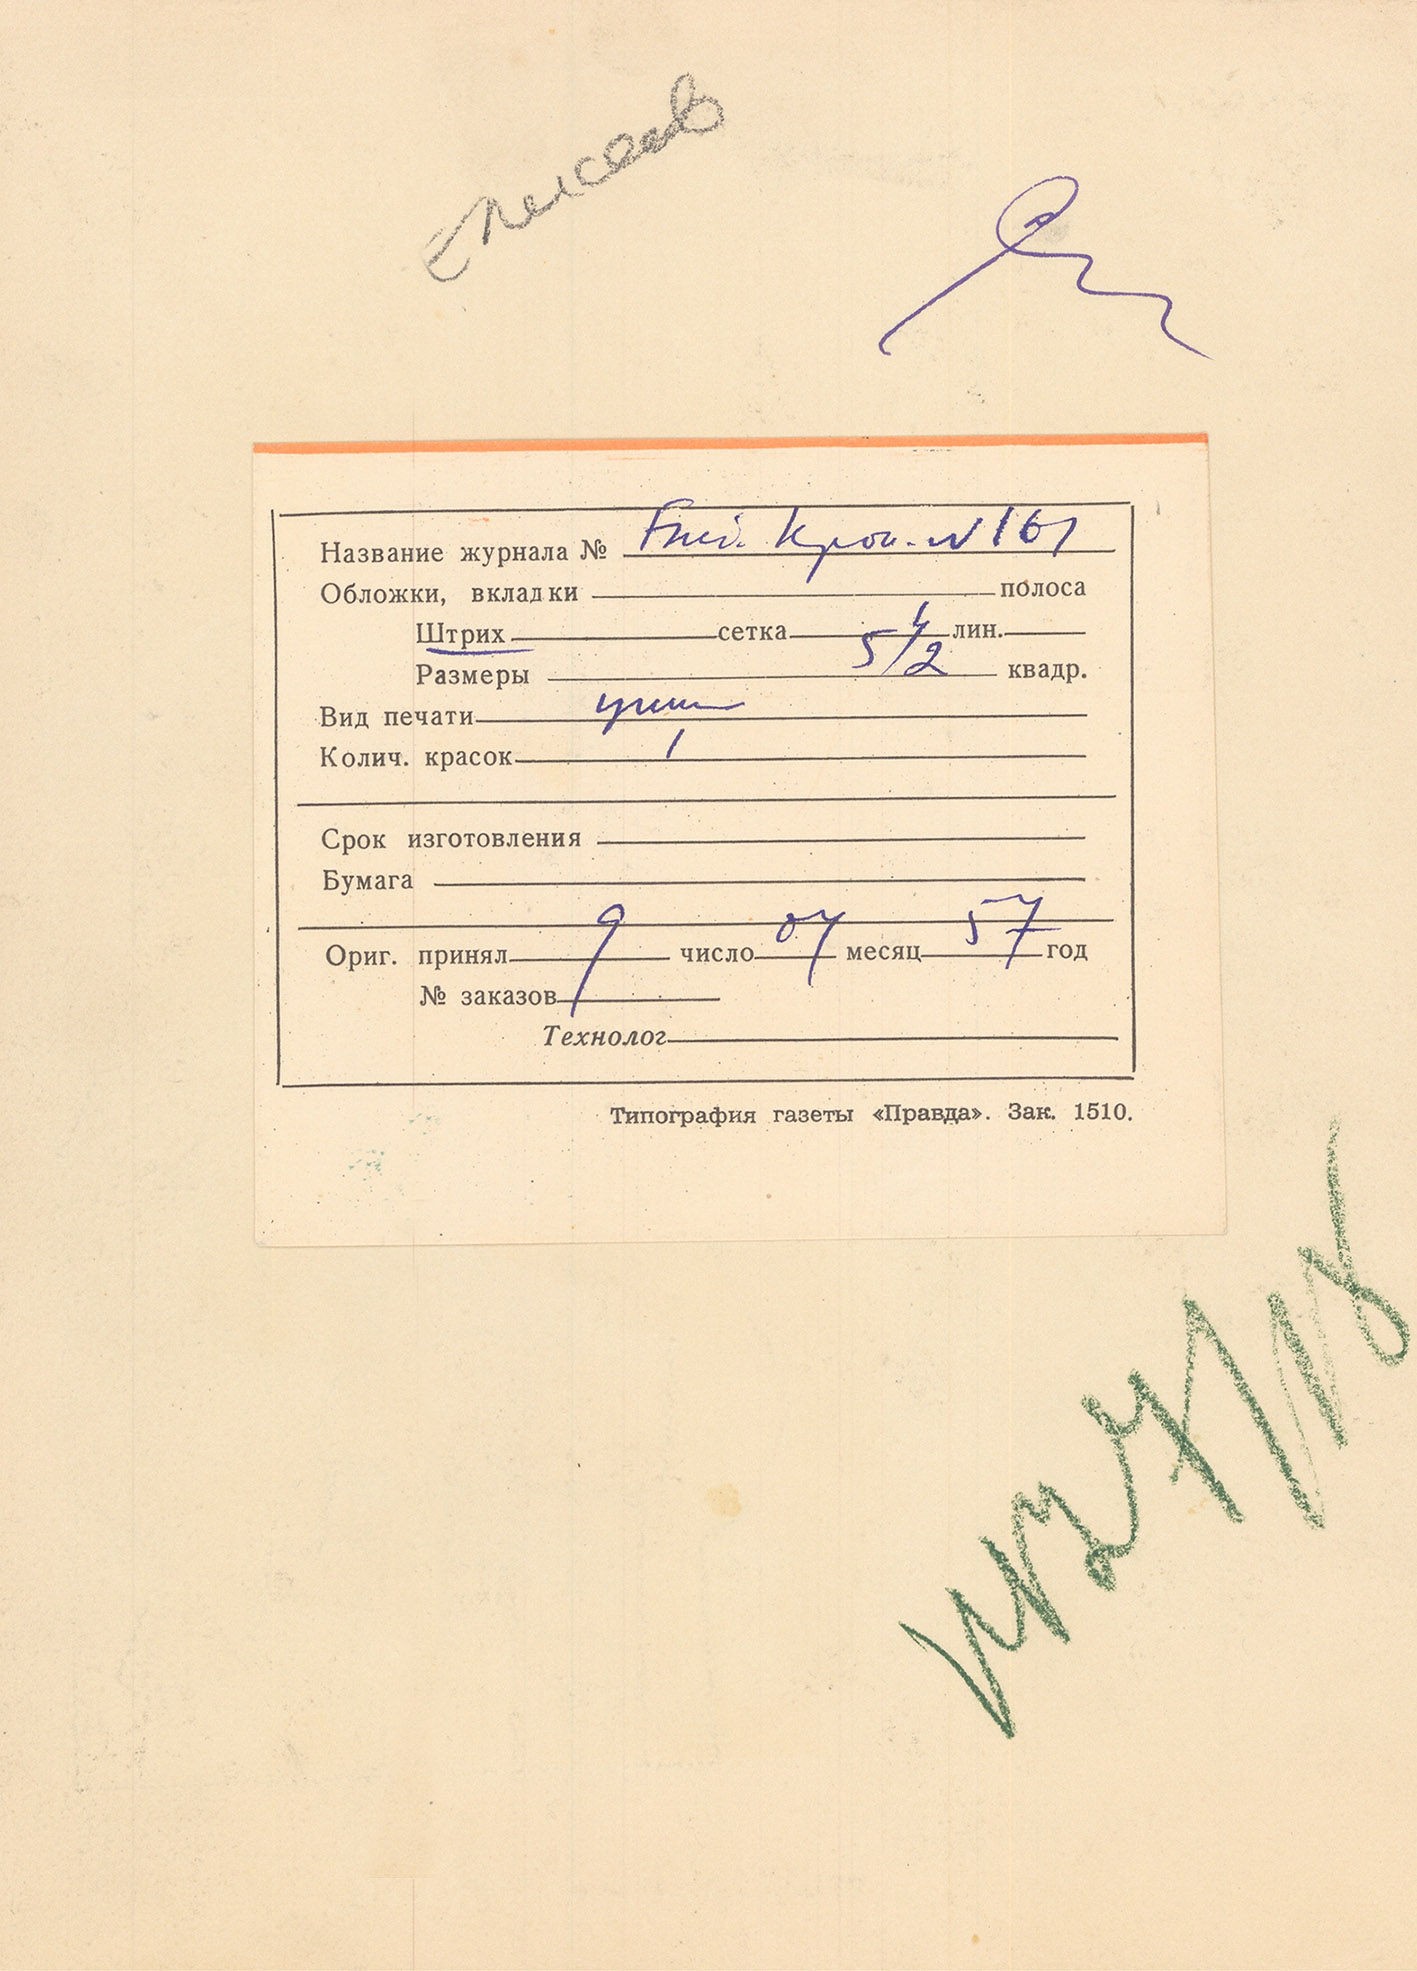 Название журнала № Биб. Крок. № 161
Обложки, вкладки полоса
Штрих сетка лин.
Размеры 5 1/2 квадр.
Вид печати
Колич. красок 1
Срок изготовления
Бумага
Ориг. принял 9 число 07 месяц 57 год
№ заказов
Технолог
Типография газеты «Правда». Зак. 1510.